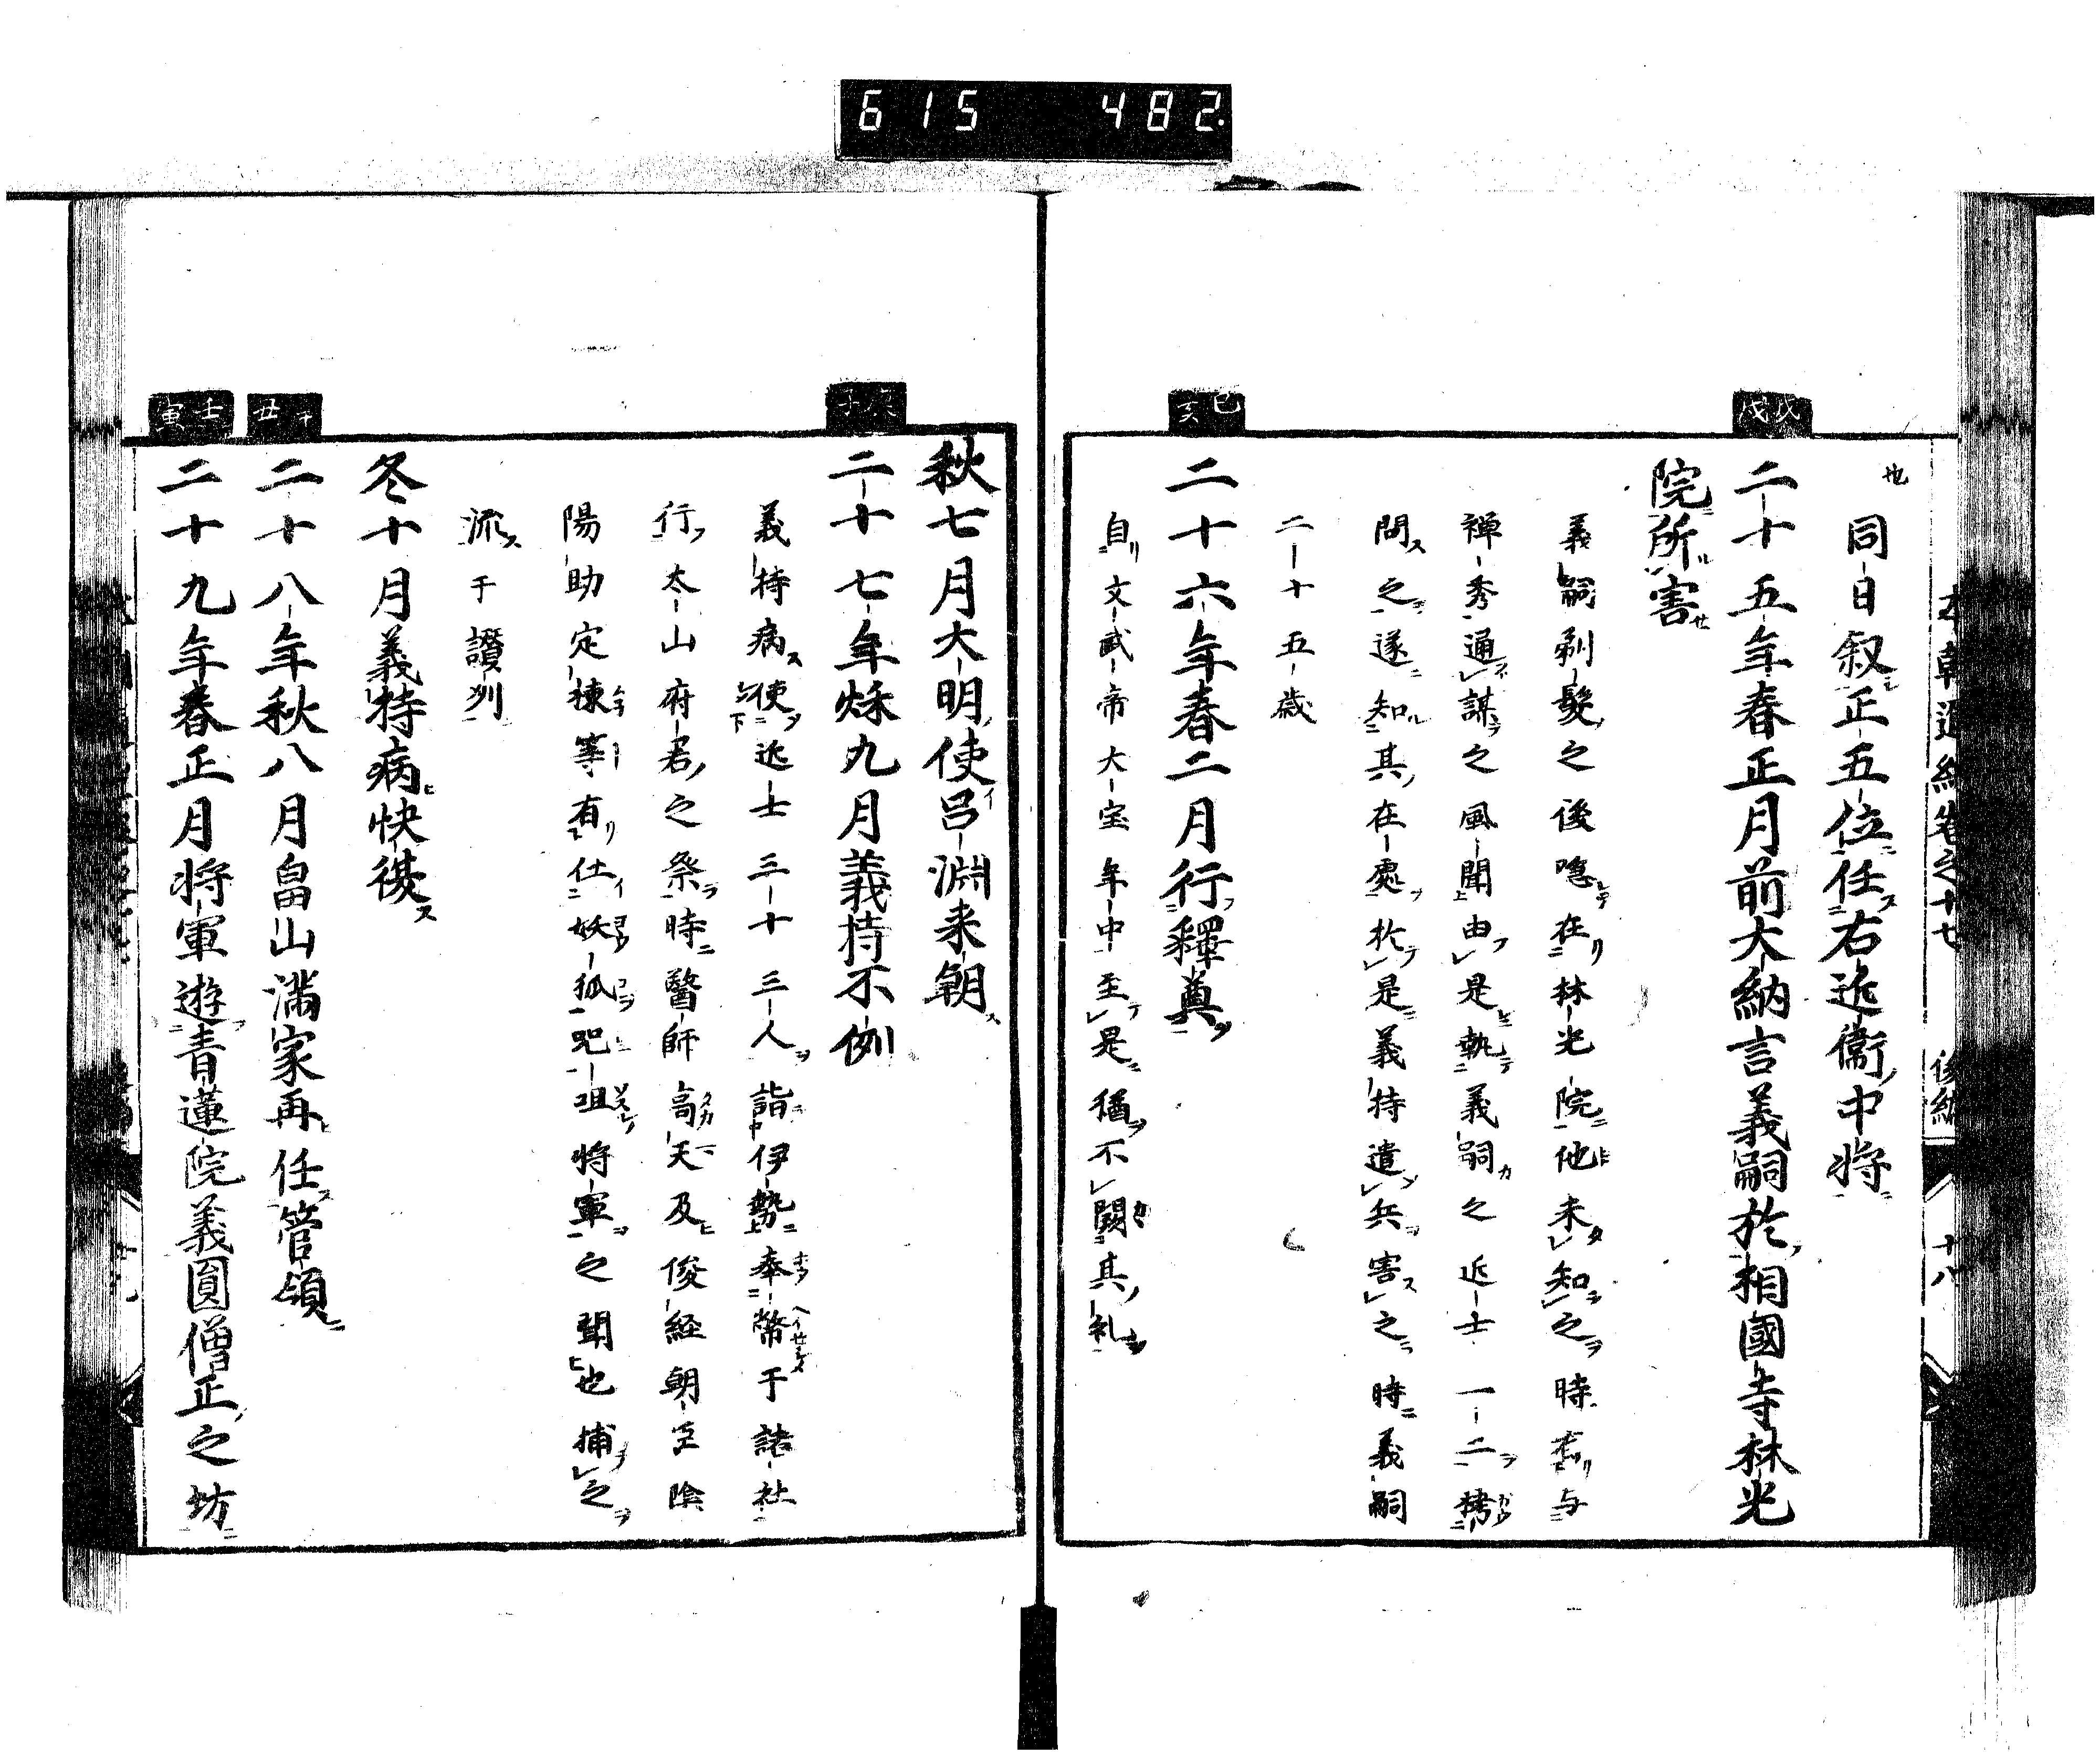 615 482.
戊戌
己亥
也
同日叙正五位任右近衞中将
二十五年春正月前大納言義嗣於相國寺林光
院所害
義嗣剃髮之後隠在林光院他未知之時有与
禅秀通謀之風聞由是執義嗣之近士一二拷
問之遂知其在處於是義持遣兵害之時義嗣
二十五歳
二十六年春二月行釋奠
自文武帝大宝年中至是猶不闕其礼
子
丑
壬寅
秋七月大明使呂淵来朝
二十七年秌九月義持不例
義持病使近士三十三人詣伊勢奉幣于諸社
行太山府君之祭時醫師高天及俊経朝臣陰
陽助定棟等有仕妖狐呪咀将軍之聞也捕之
流于讃州
冬十月義持病快復
二十八年秋八月畠山満家再任管領
二十九年春正月将軍遊青蓮院義圓僧正之坊